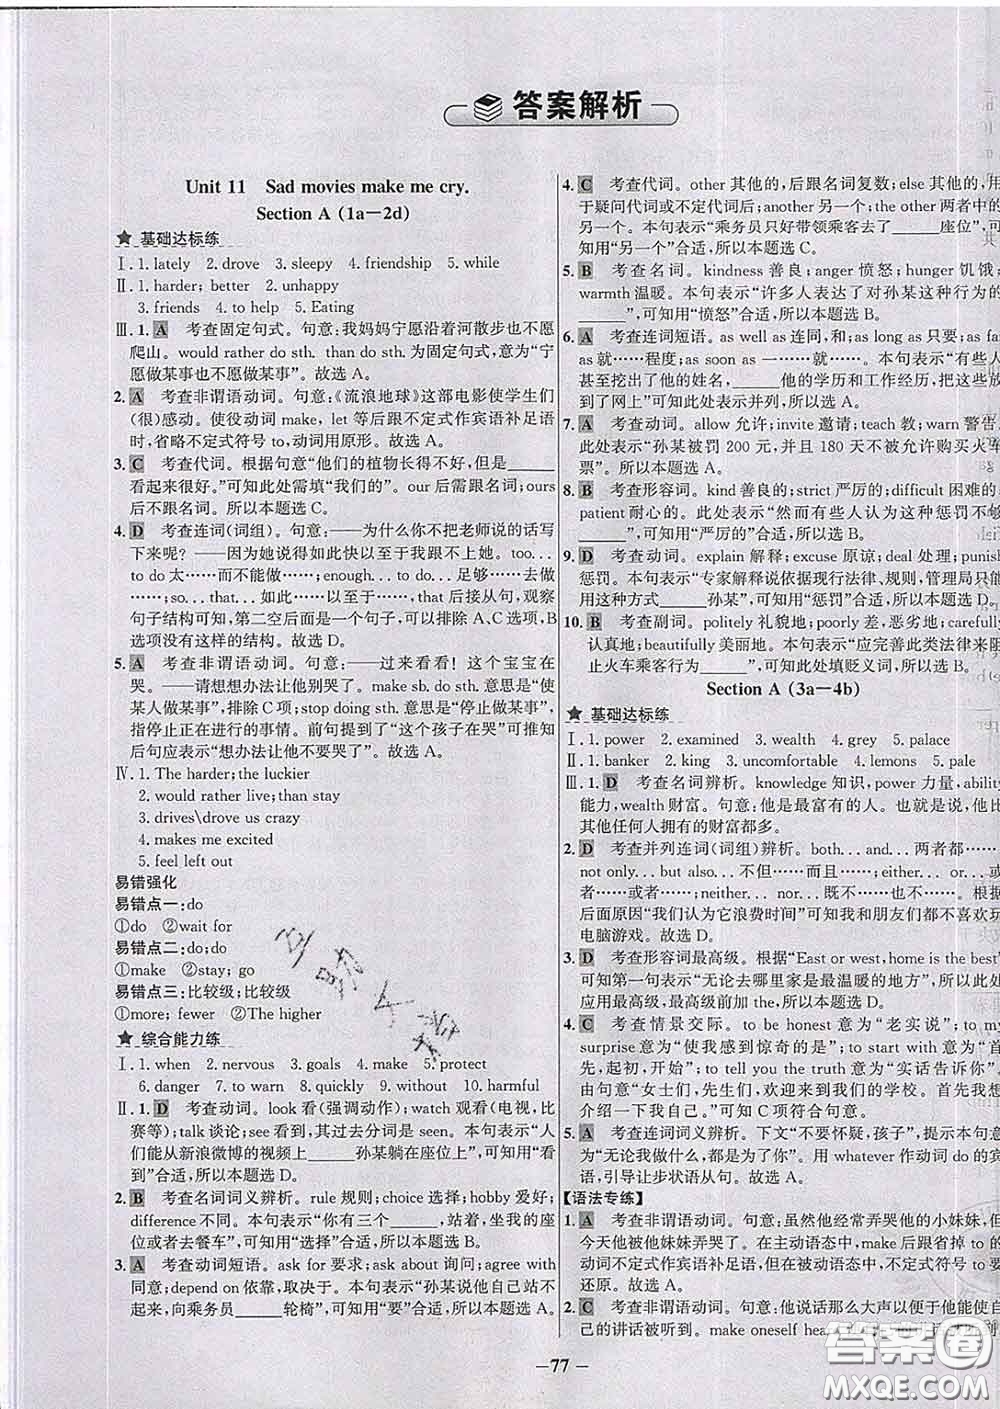 答案解析
Unit 11 Sad movies make me cry.
Section A (1a—2d)
★ 基础达标练
Ⅰ. 1. lately 2. drove 3. sleepy 4. friendship 5. while
Ⅱ. 1. harder; better 2. unhappy
3. friends 4. to help 5. Eating
Ⅲ. 1. A 考查固定句式。句意:我妈妈宁愿沿着河散步也不愿
爬山。would rather do sth. than do sth. 为固定句式,意为“宁
愿做某事也不愿做某事”。故选 A。
2. A 考查非谓语动词。句意:《流浪地球》这部电影使学生们
(很)感动。使役动词 make, let 等后跟不定式作宾语补足语
时,省略不定式符号 to,动词用原形。故选 A。
3. C 考查代词。根据句意“他们的植物长得不好,但是______
看起来很好。”可知此处需填“我们的”。our 后需跟名词;ours
后不跟名词。所以本题选 C。
4. D 考查连词(词组)。句意:——为什么你不把老师说的话写
下来呢? ——因为她说得如此快以至于我跟不上她。too...
to do 太……而不能做……;enough...to do... 足够……去做
……;so...that...如此……以至于……,that 后接从句,观察
句子结构可知,第二空后面是一个句子,可以排除 A、C 选项,B
选项没有这样的结构。故选 D。
5. A 考查非谓语动词。句意:——过来看看!这个宝宝在
哭。——请想想办法让他别哭了。make sb. do sth. 意思是“使
某人做某事”,排除 C 项;stop doing sth. 意思是“停止做某事”,
指停止正在进行的事情。前句提到了“这个孩子在哭”可推知
后句应表示“想办法让他不要哭了”。故选 A。
Ⅳ. 1. The harder;the luckier
2. would rather live;than stay
3. drives\drove us crazy
4. makes me excited
5. feel left out
易错强化
易错点一:do
①do ②wait for
易错点二:do;do
①make ②stay; go
易错点三:比较级;比较级
①more; fewer ②The higher
★ 综合能力练
Ⅰ. 1. when 2. nervous 3. goals 4. make 5. protect
6. danger 7. to warn 8. quickly 9. without 10. harmful
Ⅱ. 1. D 考查动词。look 看(强调动作);watch 观看(电视,比
赛等);talk 谈论;see 看到,其过去分词是 seen。本句表示“人
们能从新浪微博的视频上______孙某躺在座位上”,可知用“看
到”合适,所以本题选 D。
2. B 考查名词词义辨析。rule 规则;choice 选择;hobby 爱好;
difference 不同。本句表示“你有三个______,站着,坐我的座
位或者去餐车”,可知用“选择”合适,所以本题选 B。
3. A 考查动词短语。ask for 要求;ask about 询问;agree with
同意;depend on 依靠,取决于。本句表示“孙某说他自己站不
起来,向乘务员______轮椅”,可知用“要”合适,所以本题选 A。
4. C 考查代词。other 其他的,后跟名词复数;else 其他的,用
于疑问代词或不定代词后;another 另一个;the other 两者中的
另一个。本句表示“乘务员只好带领乘客去了______座位”,可
知用“另一个”合适,所以本题选 C。
5. B 考查名词。kindness 善良;anger 愤怒;hunger 饥饿;
warmth 温暖。本句表示“许多人表达了对孙某这种行为的
______”,可知用“愤怒”合适,所以本题选 B。
6. A 考查连词短语。as well as 连同,和;as long as 只要;as far
as 就……程度;as soon as 一……就……。本句表示“有些人
甚至挖出了他的姓名,______他的学历和工作经历,把这些放
到了网上”可知此处表示并列,所以本题选 A。
7. A 考查动词。allow 允许;invite 邀请;teach 教;warn 警告。
此处表示“孙某被罚 200 元,并且 180 天不被允许购买火车
票”。所以本题选 A。
8. B 考查形容词。kind 善良的;strict 严厉的;difficult 困难的;
patient 耐心的。此处表示“然而有些人认为这惩罚不够
______”,可知用“严厉的”合适,所以本题选 B。
9. D 考查动词。explain 解释;excuse 原谅;deal 处理;punish
惩罚。本句表示“专家解释说依据现行法律、规则,管理局只能
用这种方式______孙某”,可知用“惩罚”合适,所以本题选 D。
10. B 考查副词。politely 礼貌地;poorly 差,恶劣地;carefully
认真地;beautifully 美丽地。本句表示“应完善此类法律来阻
止火车乘客行为______”,可知此处填贬义词,所以本题选 B。
Section A (3a—4b)
★ 基础达标练
Ⅰ. 1. power 2. examined 3. wealth 4. grey 5. palace
Ⅱ. 1. banker 2. king 3. uncomfortable 4. lemons 5. pale
Ⅲ. 1. D 考查名词辨析。knowledge 知识,power 力量,ability
能力,wealth 财富。句意:他是最富有的人。也就是说,他比
其他任何人拥有的财富都多。
2. D 考查并列连词(词组)辨析。both...and... 两者都……
not only...but also...不但……而且……;either...or...或
……或者……;neither...nor...既不……也不……。根据
后面原因“我们认为它浪费时间”可知我和朋友们都不喜欢玩
电脑游戏。故选 D。
3. D 考查形容词最高级。根据“East or west, home is the best”
可知第一句表示“无论去哪里家是最温暖的地方”,所以此处
应用最高级,最高级前加 the。故选 D。
4. C 考查情景交际。to be honest 意为“老实说”;to my
surprise 意为“使我感到惊奇的是”;to start with 意为“首
先,起初,开始”;to tell you the truth 意为“实话告诉你”。
由句意“女士们,先生们,欢迎来到我们的学校。首先我想
介绍一下我自己。”可知 C 项符合句意。
5. A 考查连词词义辨析。下文“不要怀疑,孩子”,提示本句意
为“无论我做什么,都是为了你”。用 whatever 作动词 do 的宾
语,引导让步状语从句。故选 A。
【语法专练】
1. A 考查非谓语动词。句意:虽然他经常弄哭他的小妹妹,但
今天他被他妹妹弄哭了。在主动语态中,make 后跟省掉 to 的
动词不定式作宾语补足语,但在被动语态中,不定式符号 to 要
还原。故选 A。
2. C 考查非谓语动词。句意:他说话那么大声以便于他能使自
己的讲话被听到。make oneself
— 77 —
答案圈
MXQE.COM